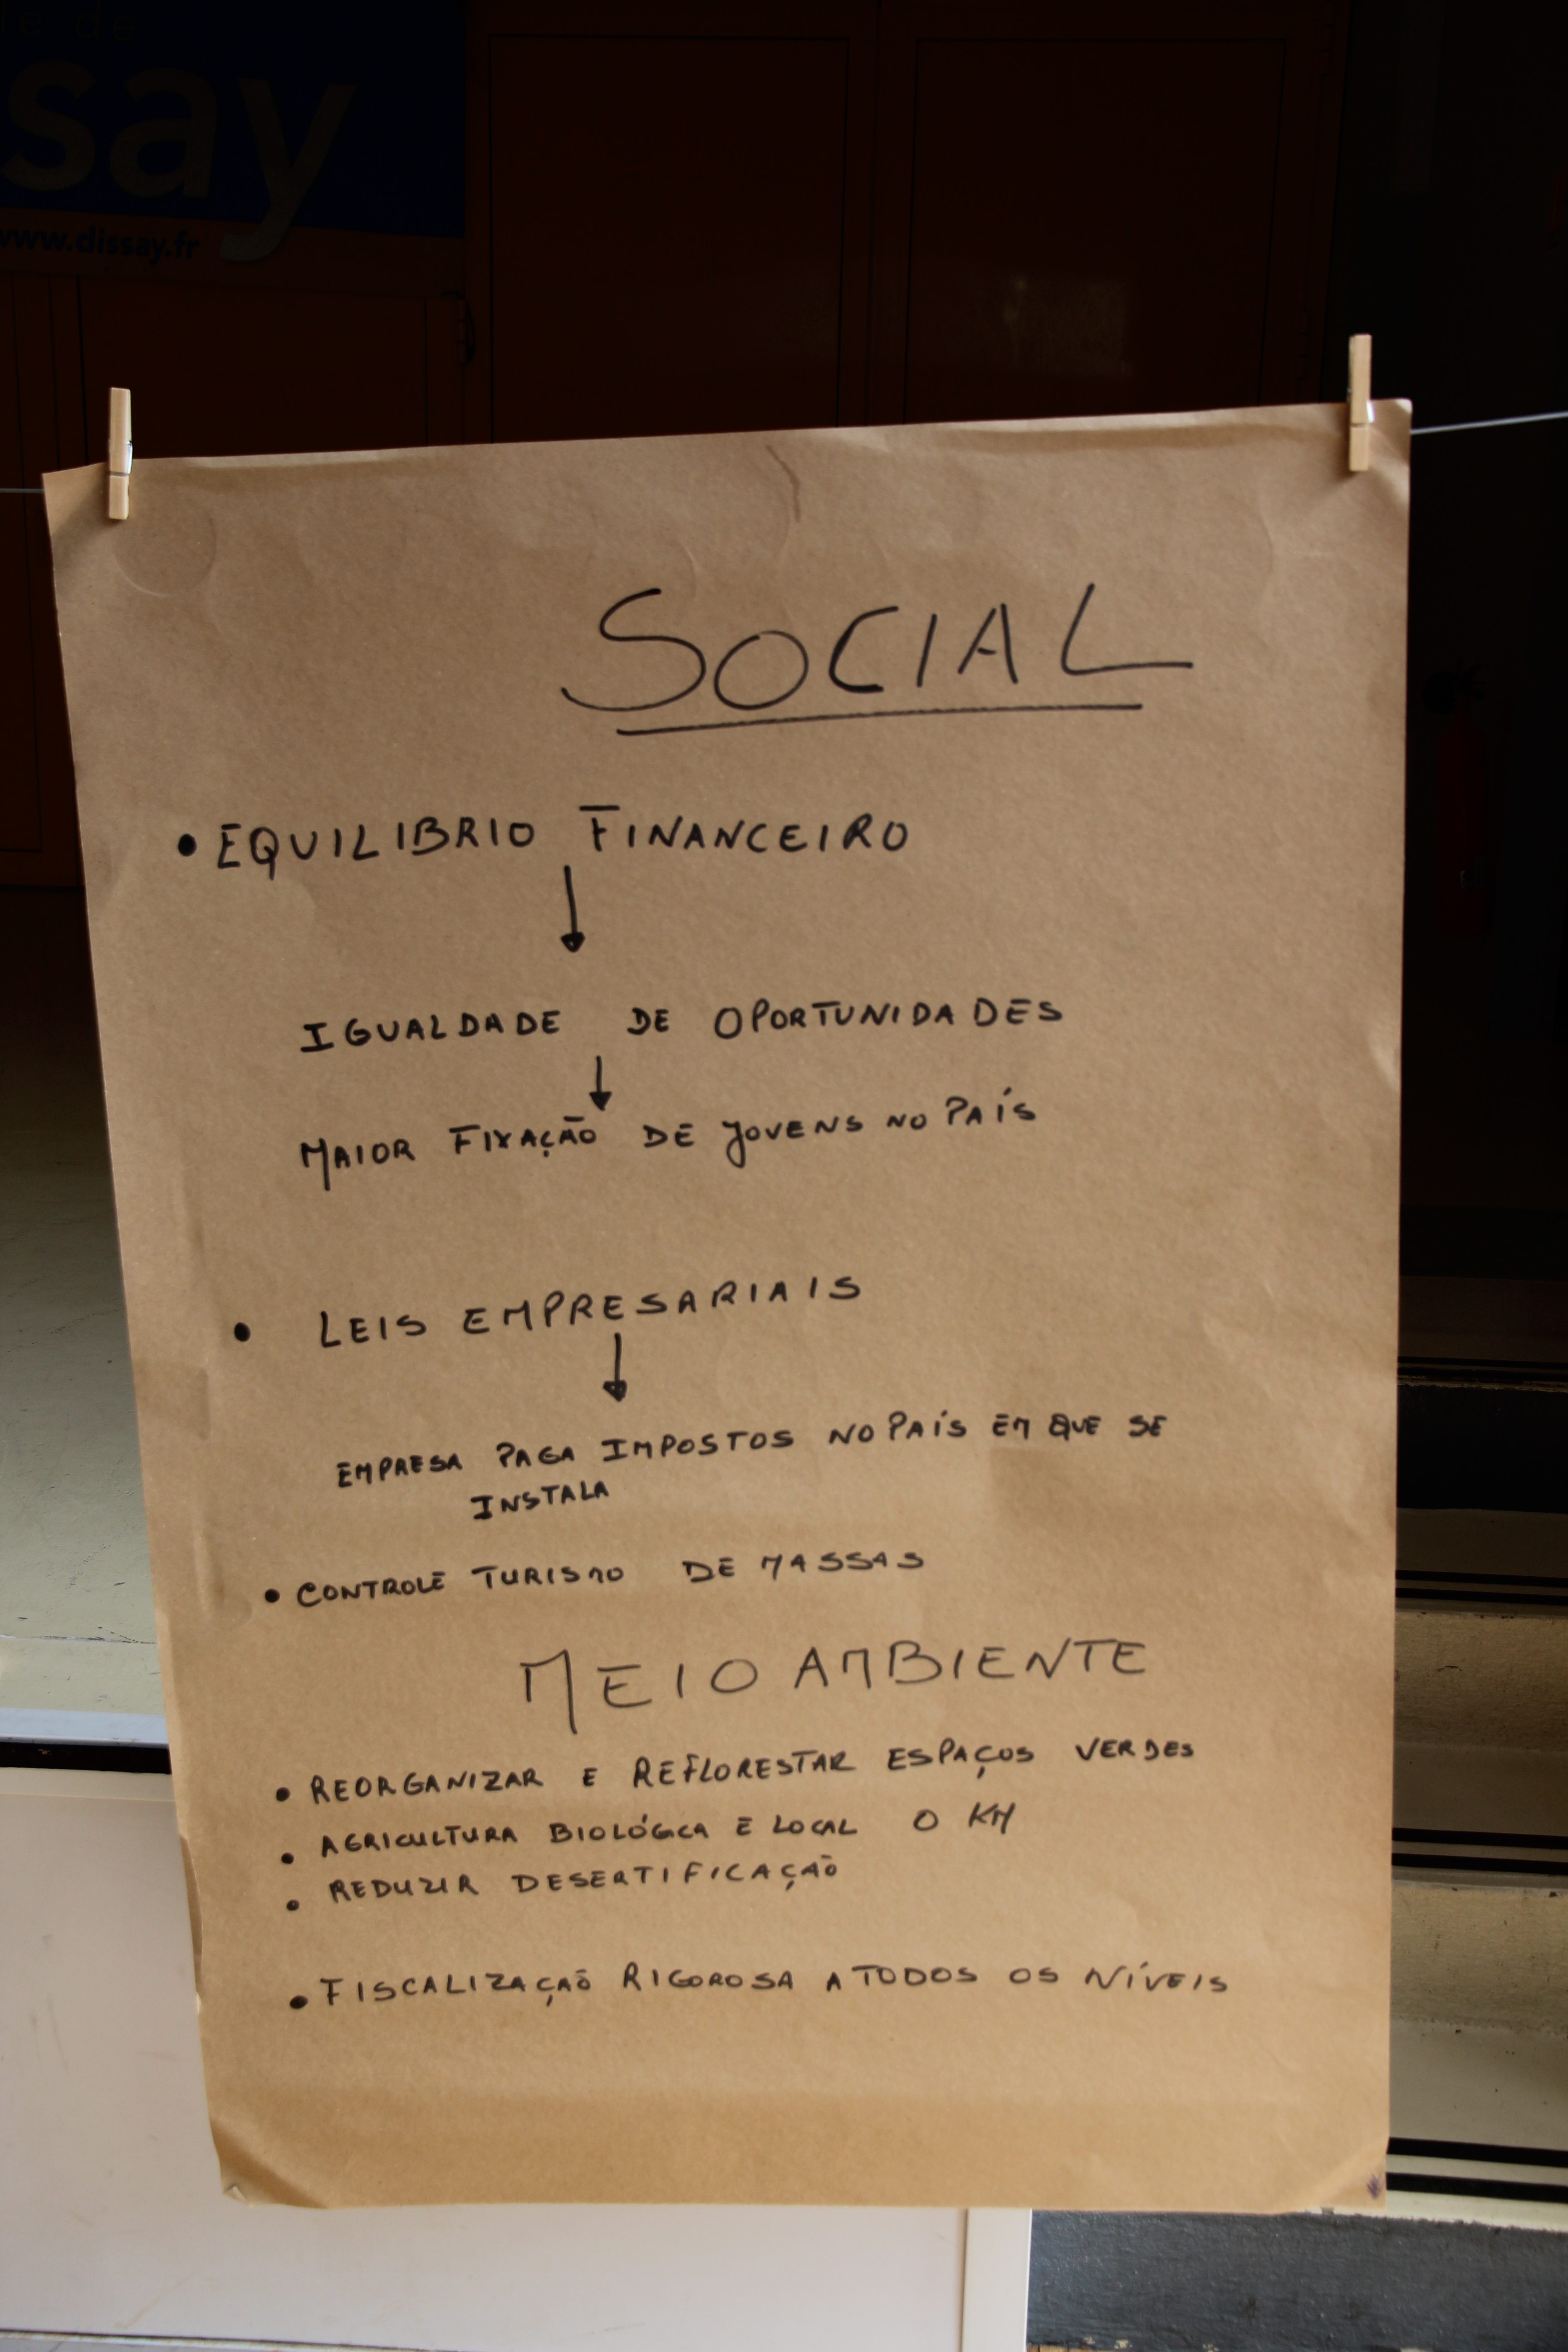 le de
ssay
www.dissay.fr
SOCIAL
• EQUILIBRIO FINANCEIRO
↓
IGUALDADE DE OPORTUNIDADES
↓
MAIOR FIXAÇÃO DE JOVENS NO PAÍS
• LEIS EMPRESARIAIS
↓
EMPRESA PAGA IMPOSTOS NO PAÍS EM QUE SE
INSTALA
• CONTROLE TURISMO DE MASSAS
MEIO AMBIENTE
• REORGANIZAR E REFLORESTAR ESPAÇOS VERDES
• AGRICULTURA BIOLÓGICA E LOCAL 0 KM
• REDUZIR DESERTIFICAÇÃO
• FISCALIZAÇÃO RIGOROSA A TODOS OS NÍVEIS